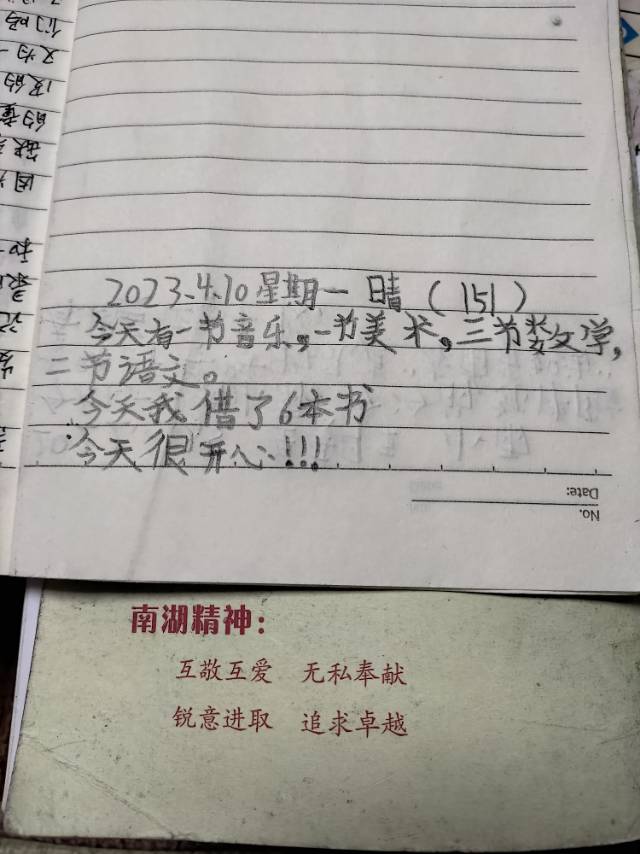 2023.4.10星期一 晴(151)
今天有一节音乐,一节美术,三节数学,
二节语文。
今天我借了6本书
今天很开心!!!
Date:
No.
南湖精神:
互敬互爱 无私奉献
锐意进取 追求卓越